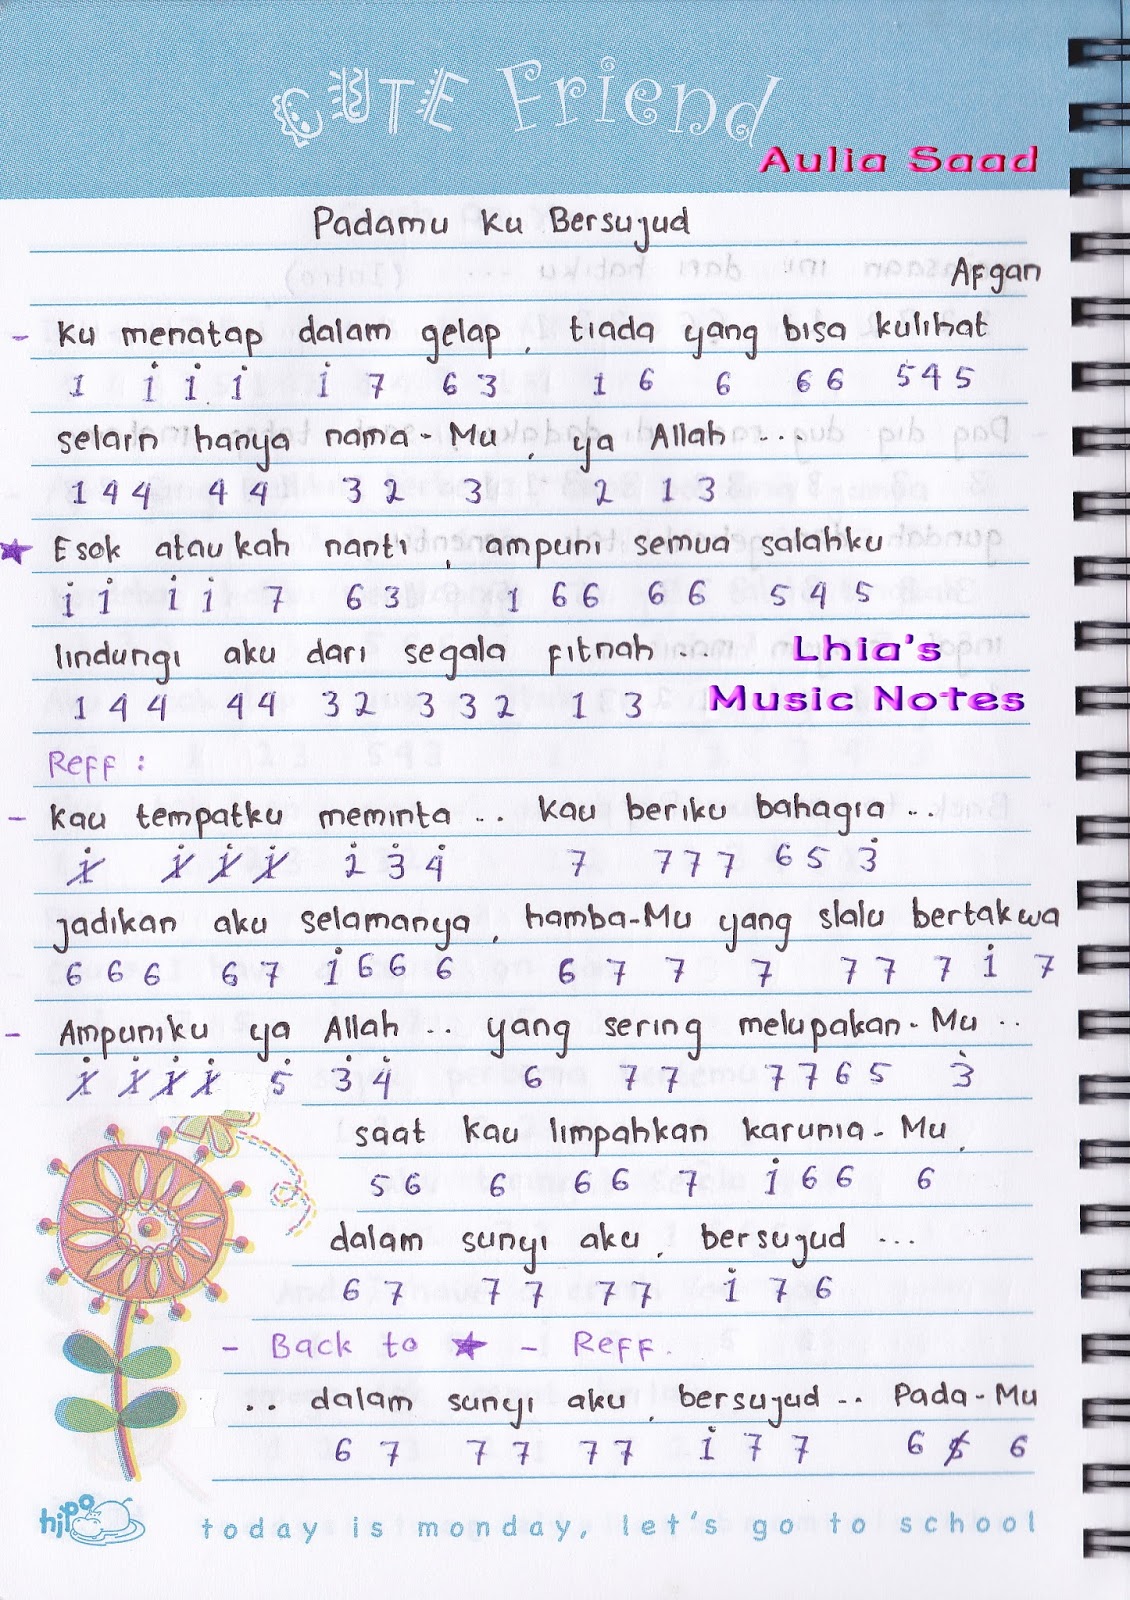 CUTE Friend
Aulia Saad
Padamu ku Bersujud
Afgan
- ku menatap dalam gelap, tiada yang bisa kulihat
1 i i i i 7 6 3 1 6 6 6 6 5 4 5
selain hanya nama-Mu, ya Allah ...
1 4 4 4 4 3 2 3 2 1 3
★ Esok ataukah nanti, ampuni semua salahku
i i i i 7 6 3 1 6 6 6 6 5 4 5
lindungi aku dari segala fitnah ...
1 4 4 4 4 3 2 3 3 2 1 3
Lhia's
Music Notes
Reff :
- kau tempatku meminta .. kau beriku bahagia ..
i i i i 2̇ 3̇ 4̇ 7 7 7 7 6 5 3̇
jadikan aku selamanya, hamba-Mu yang slalu bertakwa
6 6 6 6 7 i 6 6 6 6 7 7 7 7 7 7 i 7
- Ampuniku ya Allah .. yang sering melupakan-Mu ..
i i i i 5̇ 3̇ 4̇ 6 7 7 7 7 6 5 3̇
saat kau limpahkan karunia-Mu,
5 6 6 6 6 7 i 6 6 6
dalam sunyi aku, bersujud ...
6 7 7 7 7 7 i 7 6
- Back to ★ - Reff.
.. dalam sunyi aku, bersujud .. Pada-Mu
6 7 7 7 7 7 i 7 7 6 $ 6
hipo
today is monday, let's go to school